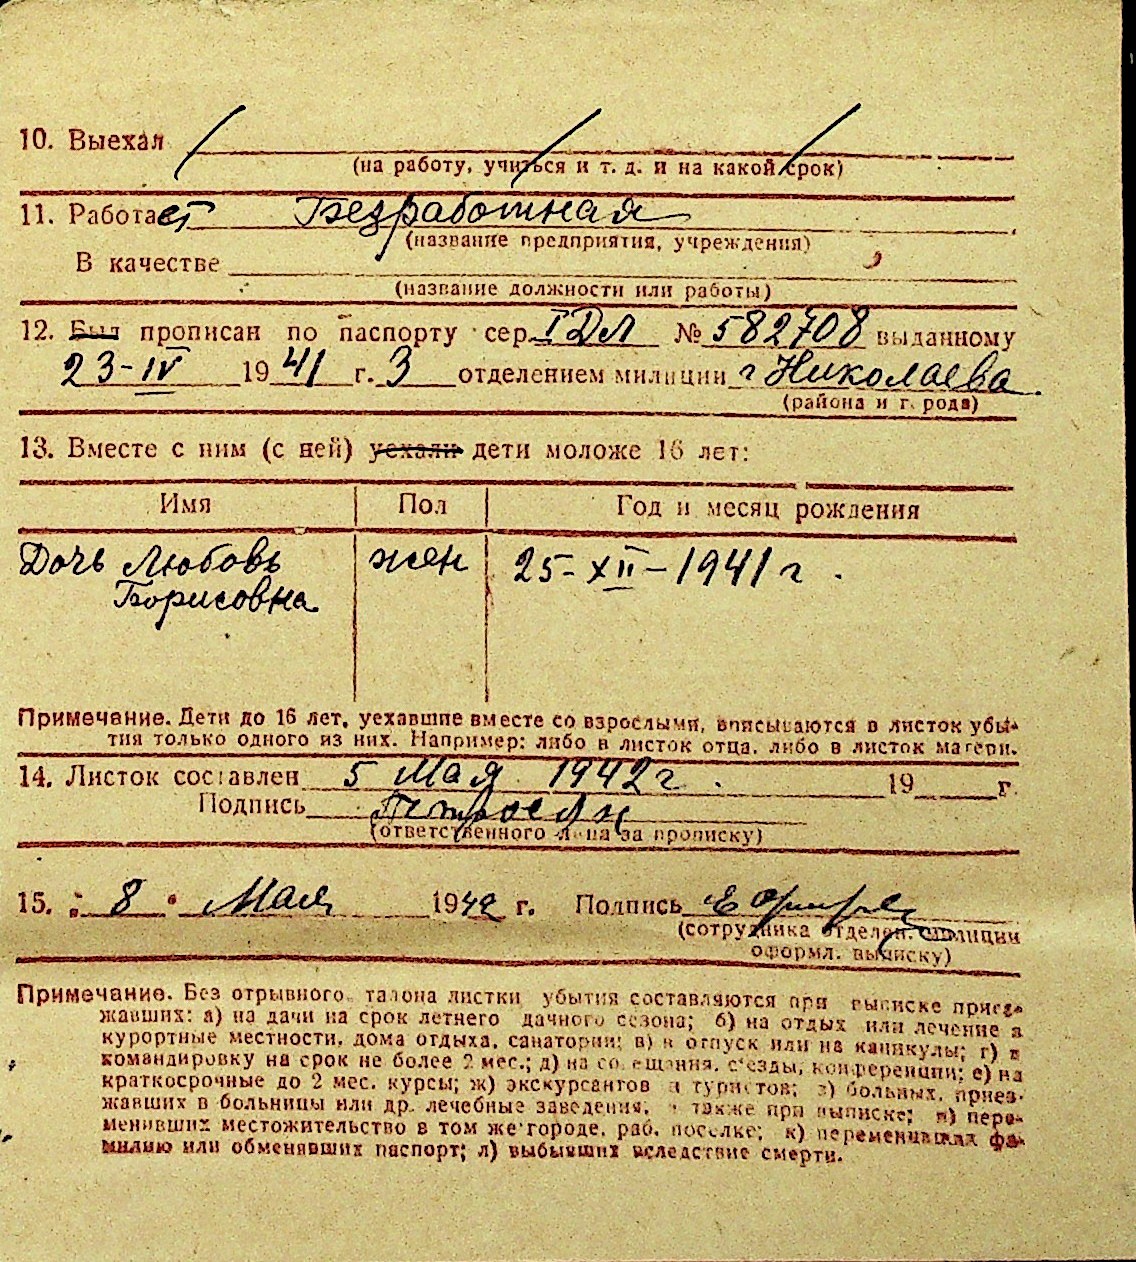 10. Выехал
(на работу, учиться и т. д. и на какой срок)
11. Работает Безработная
(название предприятия, учреждения)
В качестве
(название должности или работы)
12. Был прописан по паспорту сер. I ДЛ № 582708 выданному
23-IV 1941 г. 3 отделением милиции г Николаева
(района и города)
13. Вместе с ним (с ней) уехали дети моложе 16 лет:
Имя Пол Год и месяц рождения
Дочь Любовь жен 25-XII-1941 г.
Борисовна
Примечание. Дети до 16 лет, уехавшие вместе со взрослыми, вписываются в листок убы-
тия только одного из них. Например: либо в листок отца, либо в листок матери.
14. Листок составлен 5 Мая 1942 г. 19 г.
Подпись Петросян
(ответственного лица за прописку)
15. "8" Мая 1942 г. Подпись
(сотрудника отделен. милиции
оформл. выписку)
Примечание. Без отрывного талона листки убытия составляются при выписке приез-
жавших: а) на дачи на срок летнего дачного сезона; б) на отдых или лечение в
курортные местности, дома отдыха, санатории; в) в отпуск или на каникулы; г) в
командировку на срок не более 2 мес.; д) на совещания, съезды, конференции; е) на
краткосрочные до 2 мес. курсы; ж) экскурсантов и туристов; з) больных, приез-
жавших в больницы или др. лечебные заведения, а также при выписке; и) пере-
менивших местожительство в том же городе, раб. поселке; к) переменивших фа-
милию или обменявших паспорт; л) выбывших вследствие смерти.